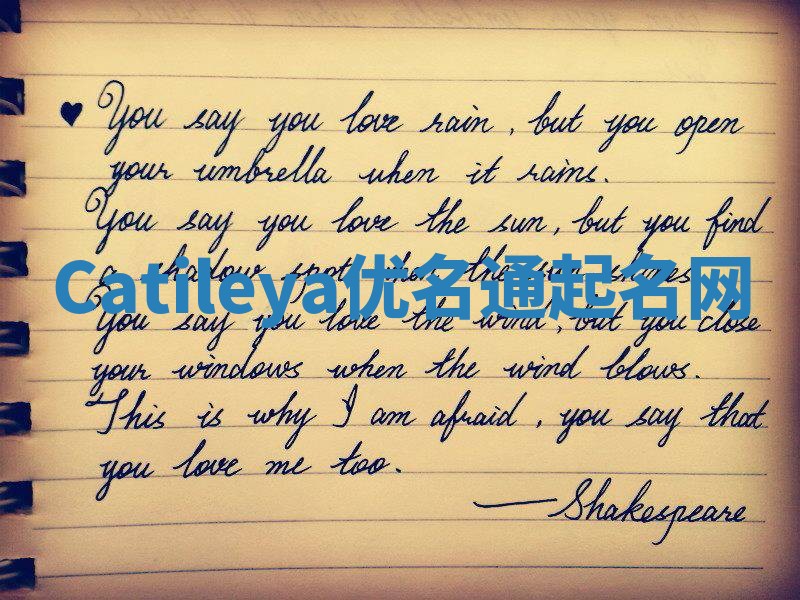 ♥ You say you love rain, but you open
your umbrella when it rains.
You say you love the sun, but you find
a shadow spot when the sun shines
Catileya优名通起名网
You say you love the wind, but you close
your windows when the wind blows.
This is why I am afraid, you say that
you love me too.
—Shakespeare